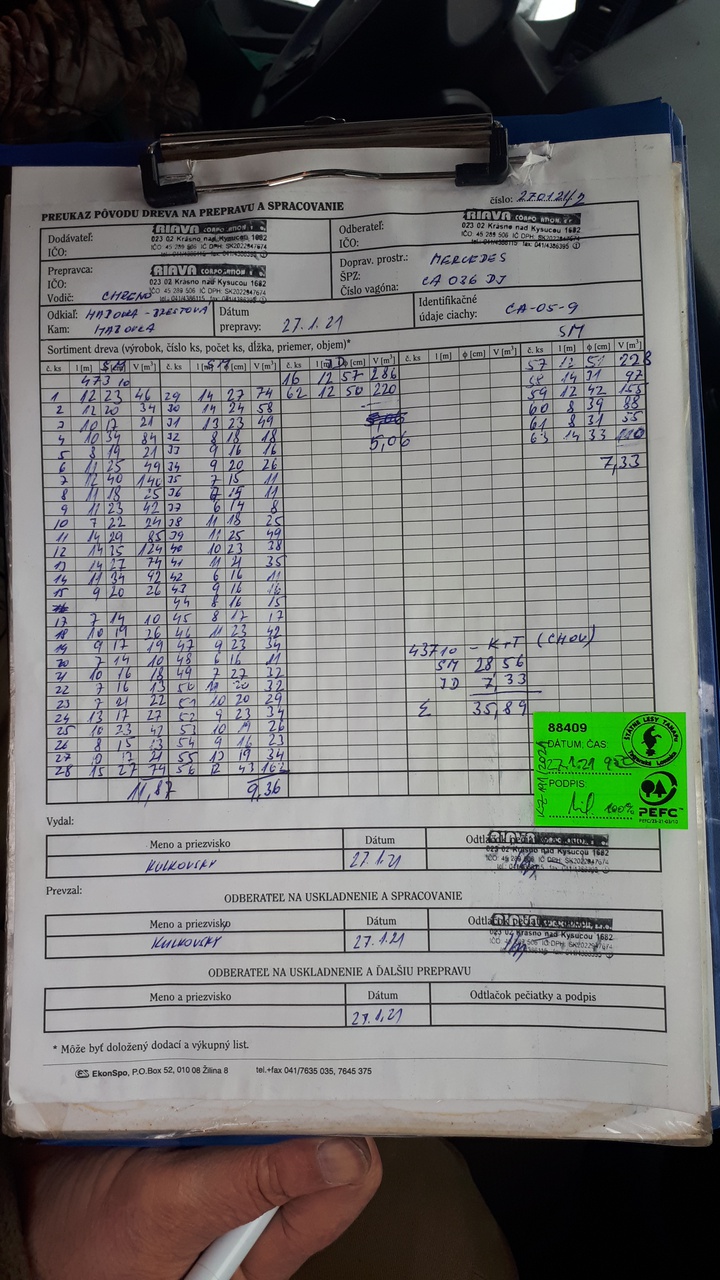 číslo: 270121/2
PREUKAZ PÔVODU DREVA NA PREPRAVU A SPRACOVANIE
Dodávateľ:
IČO:
RIAVA CORPORATION
023 02 Krásno nad Kysucou 1682
IČO: 45 289 506 IČ DPH: SK2022947674
Odberateľ:
IČO:
RIAVA
023 02 Krásno nad Kysucou 1682
IČO: 45 289 506 IČ DPH: SK2022947674
Prepravca:
IČO:
Vodič:
RIAVA CORPORATION
023 02 Krásno nad Kysucou 1682
IČO: 45 289 506 IČ DPH: SK2022947674
Doprav. prostr.: MERCEDES
ŠPZ:
Číslo vagóna: CA 036 DJ
Odkiaľ:
Kam: HAJOVKA
Dátum
prepravy: 27.1.21
Identifikačné
údaje ciachy: CA-05-9
SM
Sortiment dreva (výrobok, číslo ks, počet ks, dĺžka, priemer, objem)*
č. ks l [m] V [m³] č. ks l [m] V [m³] č. ks l [m] ϕ [cm] V [m³] č. ks l [m] ϕ [cm] V [m³] č. ks l [m] ϕ [cm] V [m³]
473 10 16 12 57 286 57 12 51 228
1 12 23 46 29 14 27 74 62 12 50 220 14 31 97
2 12 20 34 30 14 24 58 59 12 42 155
3 10 17 21 31 13 23 49 60 8 39 88
4 10 34 84 32 8 18 18 5,06 61 8 31 55
5 8 19 21 33 9 16 16 63 14 33 110
6 11 25 49 34 9 20 26 7,33
7 12 40 140 35 7 15 11
8 11 18 25 36 7 15 11
9 11 23 42 37 6 14 8
10 7 22 24 38 11 18 25
11 14 29 85 39 11 25 49
12 14 35 124 40 10 23 38
13 14 27 74 41 11 21 35
14 11 34 92 42 6 16 11
15 9 20 26 43 9 16 16
44 8 16 15
17 7 14 10 45 8 17 17
18 10 19 26 46 11 23 42
19 9 17 19 47 9 23 34 43710 - K+T (CHOV)
20 7 14 10 48 6 16 11 SM 28 56
21 10 16 18 49 7 27 32 JD 7,33
22 7 16 13 50 20 32
23 7 21 22 51 10 20 29 Σ 35,89
24 13 17 27 52 9 23 34
25 10 23 42 53 10 19 26
26 8 15 13 54 9 16 23
27 10 17 21 55 12 19 34
28 15 27 79 56 12 43 162
11,87 9,36
88409
DÁTUM, ČAS:
27.1.21
PODPIS
100%
ŠTÁTNE LESY TANAPU
Tatranská Lomnica
PEFC™
PEFC/25-21-03/10
Vydal:
Meno a priezvisko Dátum Odtlačok pečiatky a podpis
KULKOVSKY 27.1.21
023 02 Krásno nad Kysucou 1682
Prevzal:
ODBERATEĽ NA USKLADNENIE A SPRACOVANIE
Meno a priezvisko Dátum Odtlačok pečiatky a podpis
KULKOVSKY 27.1.21
023 02 Krásno nad Kysucou 1682
ODBERATEĽ NA USKLADNENIE A ĎALŠIU PREPRAVU
Meno a priezvisko Dátum Odtlačok pečiatky a podpis
27.1.21
* Môže byť doložený dodací a výkupný list.
EkonSpo, P.O.Box 52, 010 08 Žilina 8 tel.+fax 041/7635 035, 7645 375